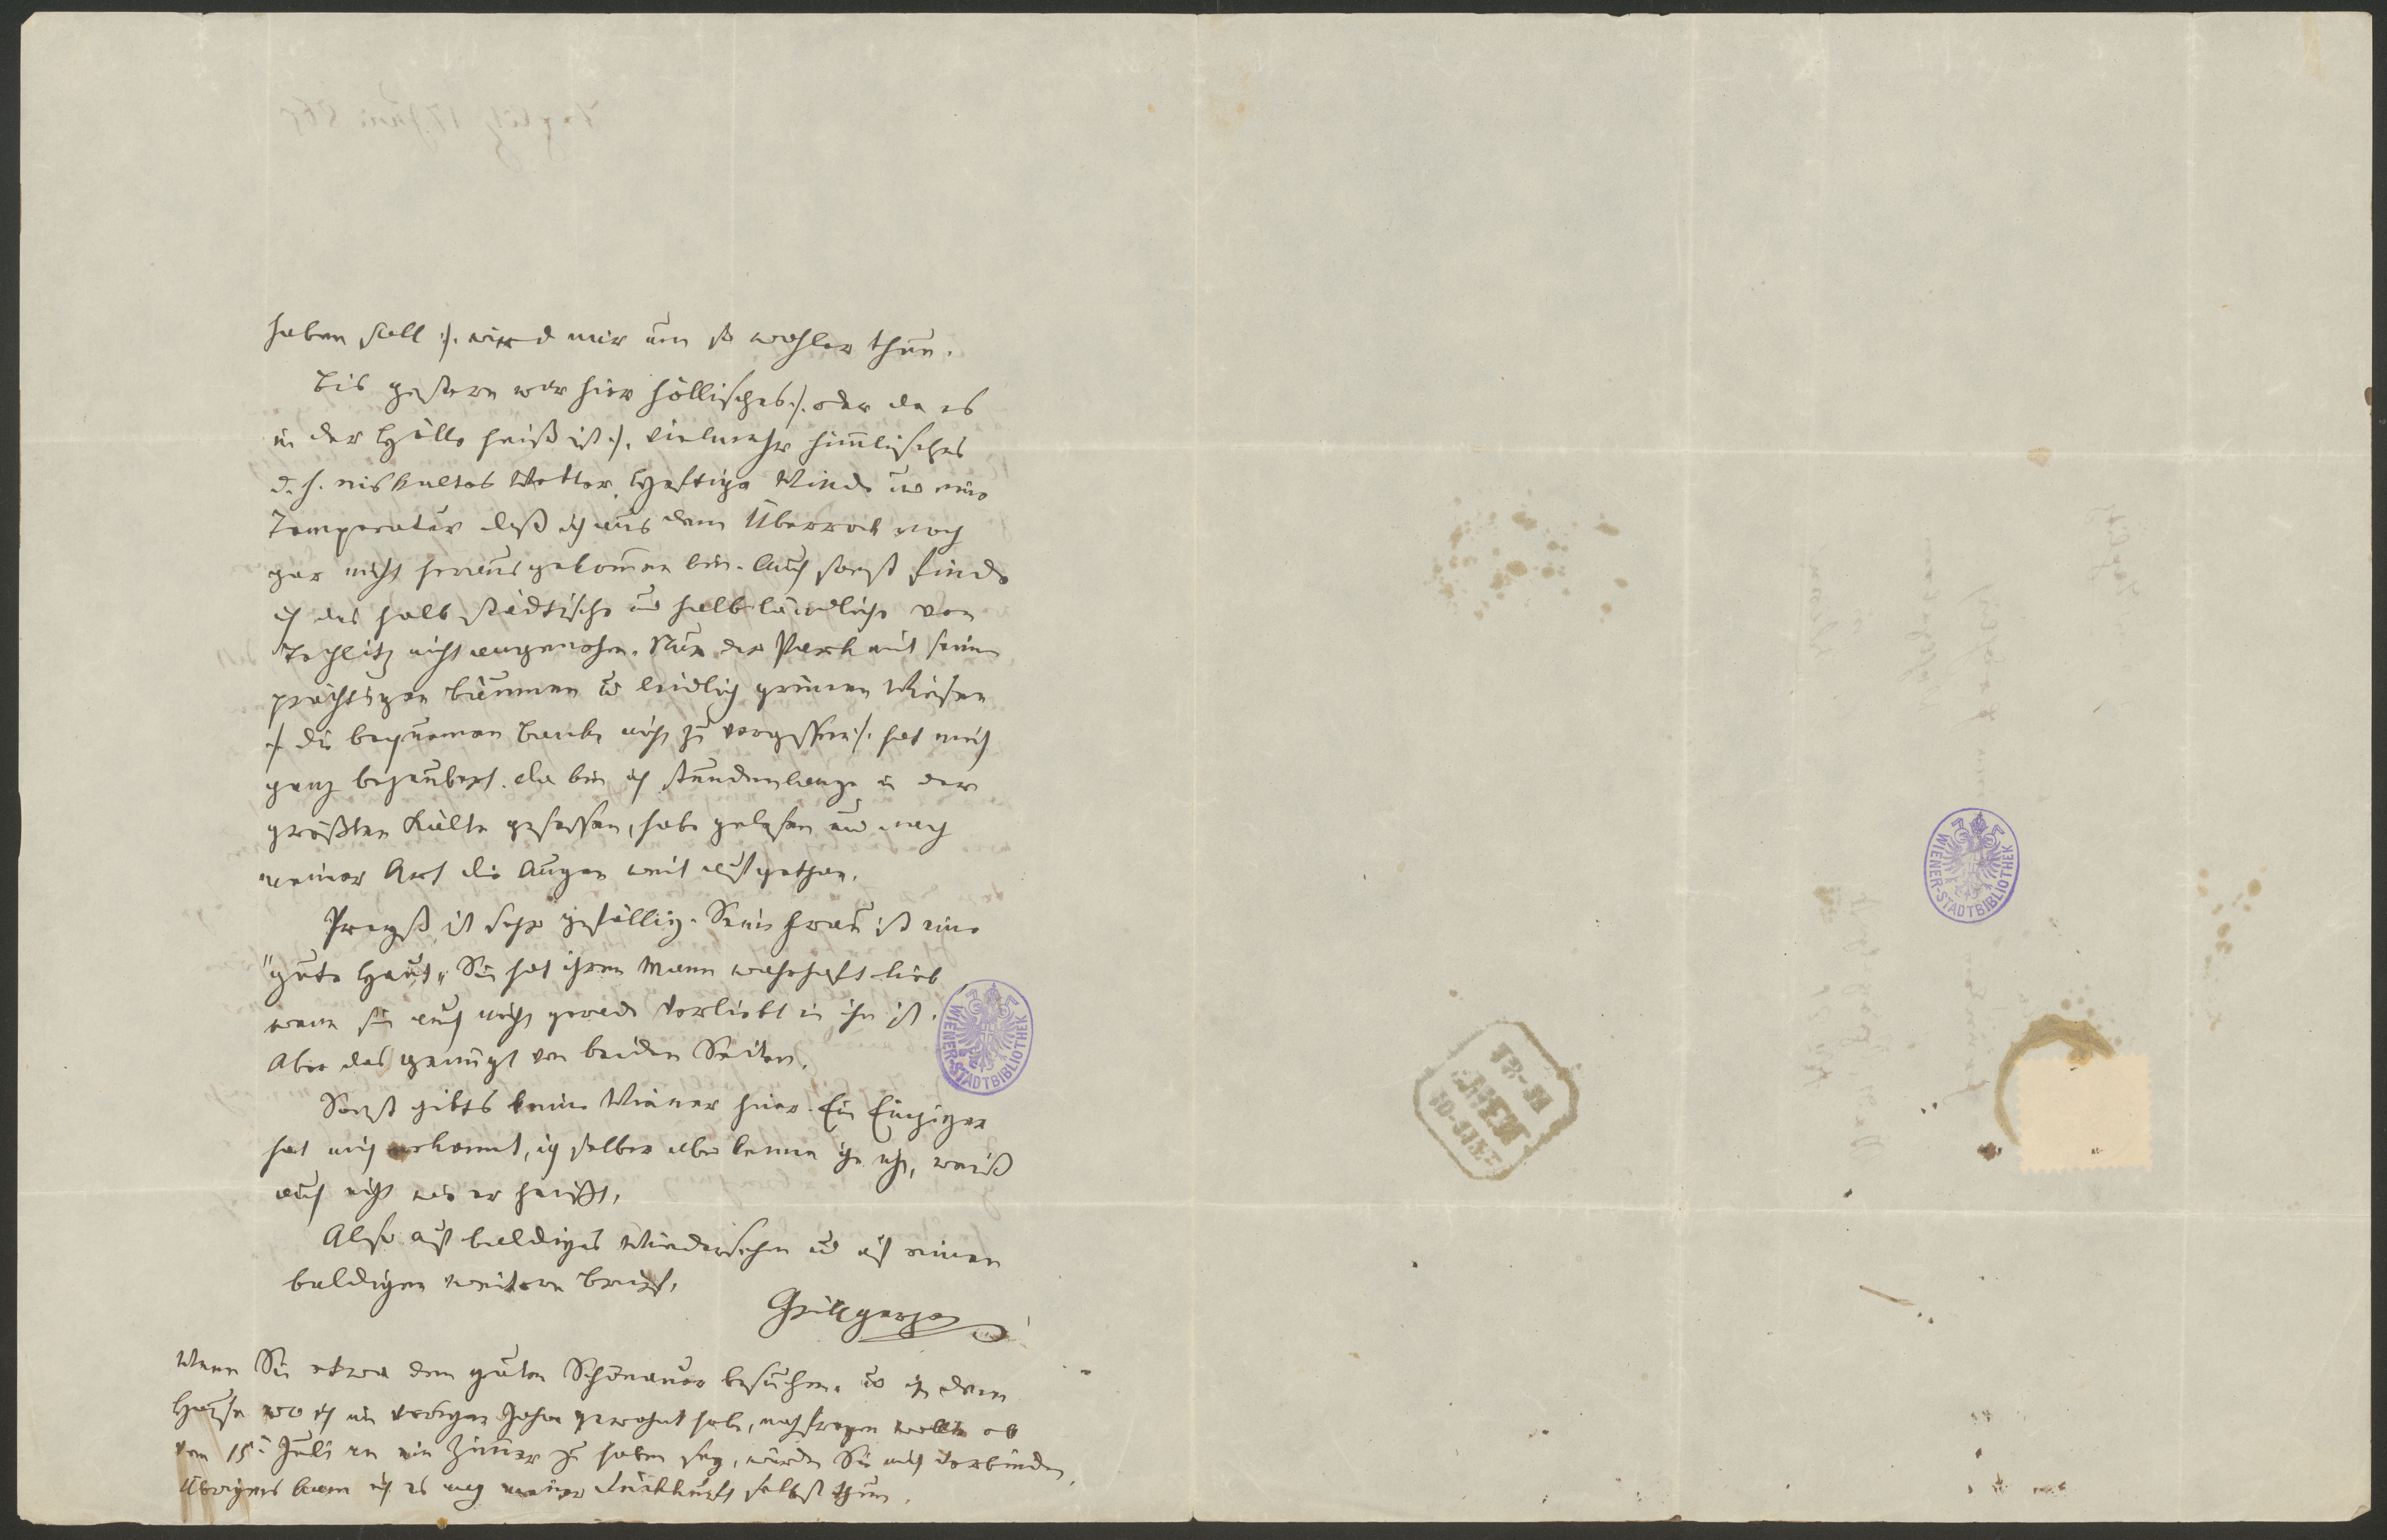 haben soll :/. wird mir um so wohler thun.
Bis gestern war hier höllisches :/. oder da es
in der Hölle heiß ist :/. vielmehr himmlisches
d. h. eiskaltes Wetter. Heftige Winde und eine
Temperatur daß ich aus dem Überrock noch
gar nicht herausgekommen bin. Auch sonst finde
ich das halb städtische und halb ländliche von
Teplitz nicht angenehm. Nur der Park mit seinen
prächtigen Bäumen und leidlich grünen Wiesen
:/. die bequemen Bänke nicht zu vergessen :/. hat mich
ganz bezaubert. Da bin ich stundenlange in der
größten Kälte gesessen, habe gelesen und nach
meiner Art die Augen weit aufgethan.
ist sehr gefällig. Seine Frau ist eine
"gute Haut" Sie hat ihren Mann wahrhaft lieb,
wenn sie auch nicht gerade verliebt in ihn ist.
Aber das genügt von beiden Seiten.
Sonst gibts keine Wiener hier. Ein Einziger
hat mich erkannt, ich selber aber kenne ihn nicht, weiß
auch nicht wie er heißt.
Also auf baldiges Wiedersehen und auf einen
baldigen weitern Brief.
Grillparzer
Wenn Sie etwa den guten Schönauer besuchen und in dem
Hause wo ich im vorigen Jahre gewohnt habe, nachfragen wollten ob
vom 15t Juli an ein Zimmer zu haben sey, würden Sie mich verbinden.
Übrigens kann ich es nach meiner Rückkunft selbst thun.
WIENER-STADTBIBLIOTHEK
WIENER-STADTBIBLIOTHEK